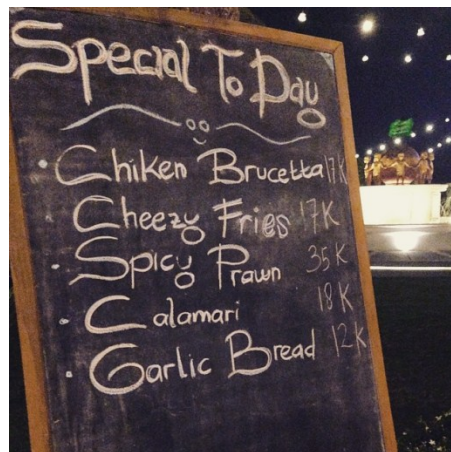 Special To Day
• Chiken Brucetta 17K
Cheezy Fries 17K
• Spicy Prawn 35K
Calamari 18K
• Garlic Bread 12K